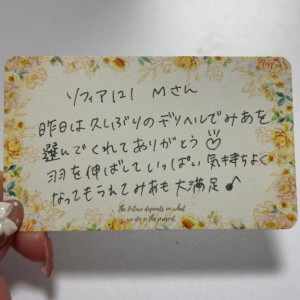 ソフィア121 Mさん
昨日は久しぶりのデリヘルでみあを
選んでくれてありがとう♡
羽を伸ばしていっぱい気持ちよく
なってもられてみあも大満足♪
The Future depends on what
we do in the present.